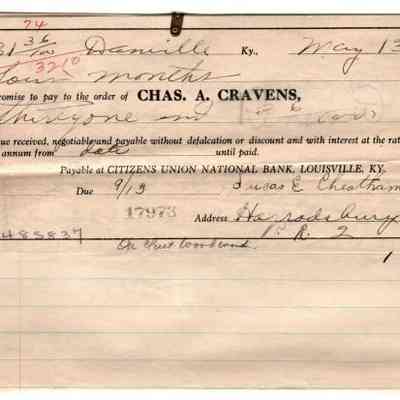 74
31 36/100 Danville Ky., May 13
3210
Four months
romise to pay to the order of CHAS. A. CRAVENS,
thirty one and 36/100
ue received, negotiable and payable without defalcation or discount and with interest at the rat
annum from date until paid.
Payable at CITIZENS UNION NATIONAL BANK, LOUISVILLE, KY.
Due 9/13 Lucas E Cheatham
17973 Address Harrodsburg
485837 R. 2
1